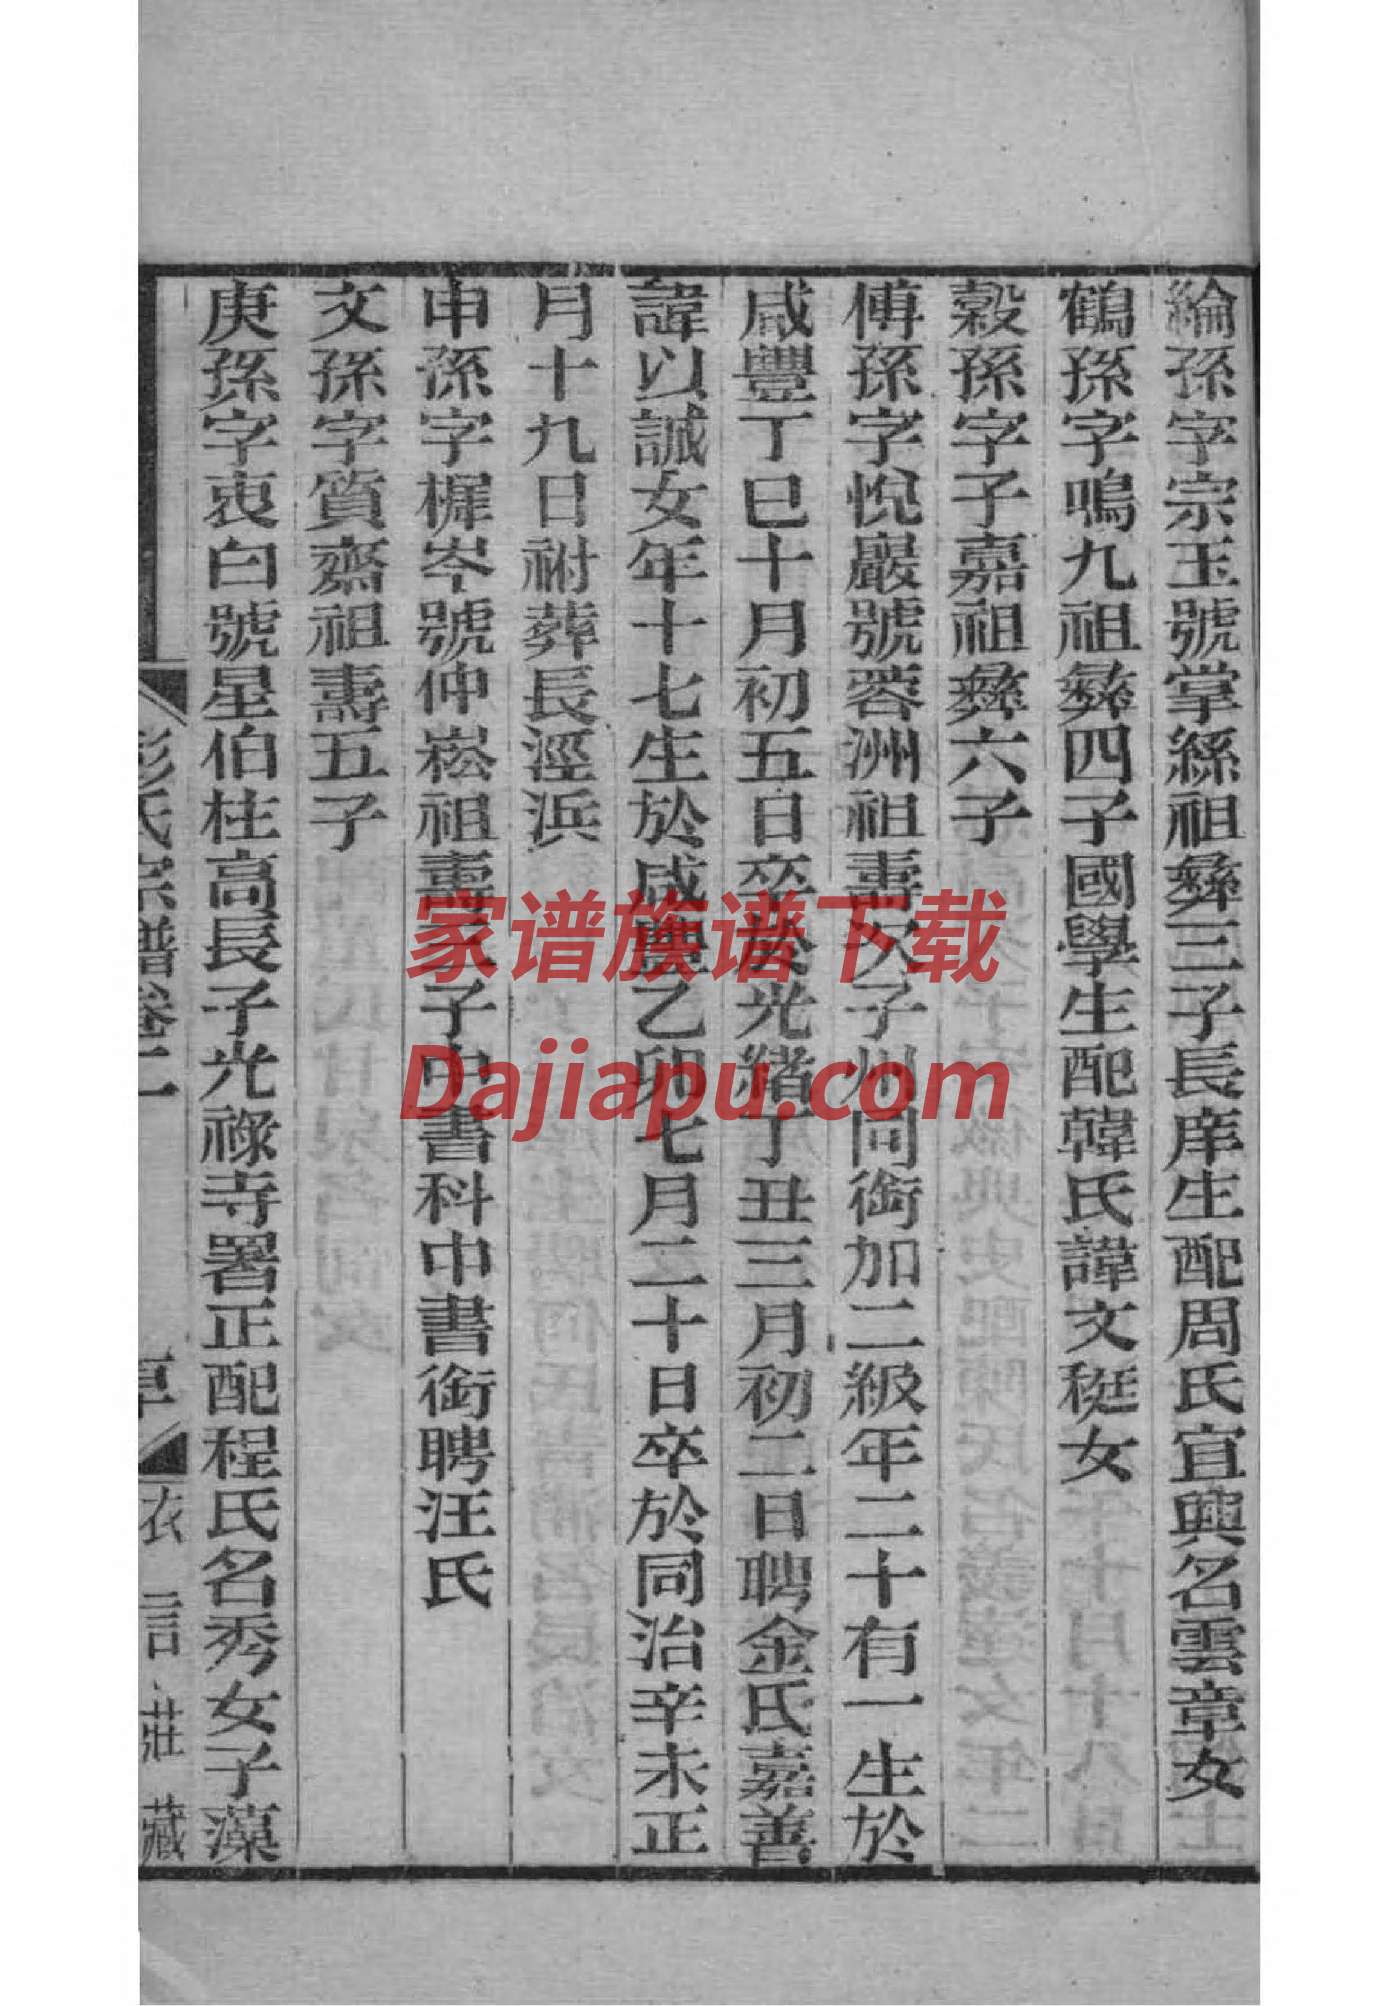 綸孫字宗玉號掌絲祖彜三子長庠生配周氏宜興名雲章女
鶴孫字鳴九祖彜四子國學生配韓氏諱文㮔女
穀孫字子嘉祖彜六子
傅孫字悅巖號蓉洲祖壽次子州同銜加二級年二十有一生於
咸豐丁巳十月初五日卒於光緒丁丑三月初二日聘金氏嘉善
諱以誠女年十七生於咸豐乙卯七月二十日卒於同治辛未正
月十九日祔葬長涇浜
申孫字樨岑號仲崧祖壽子中書科中書銜聘汪氏
文孫字質齋祖壽五子
庚孫字衷白號星伯柱高長子光祿寺署正配程氏名秀女子藻
彭氏宗譜卷二
衣言莊藏
家谱族谱下载
Dajiapu.com